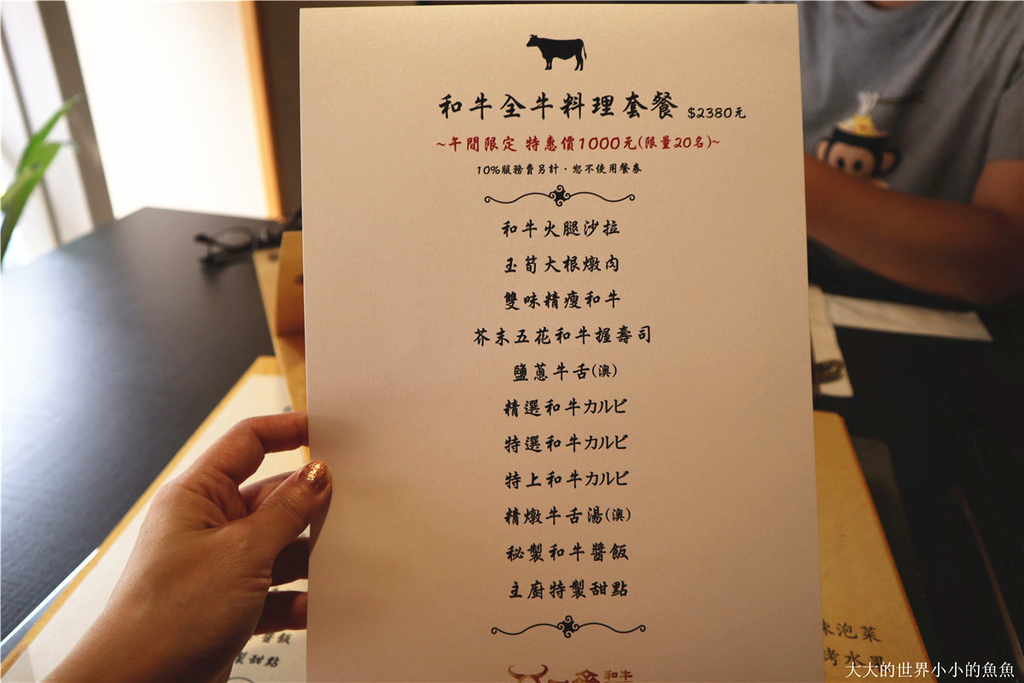 和牛全牛料理套餐 $2380元
~午間限定 特惠價1000元(限量20名)~
10%服務費另計,恕不使用餐券
和牛火腿沙拉
玉荀大根燉肉
雙味精瘦和牛
芥末五花和牛握壽司
鹽蔥牛舌(澳)
精選和牛カルビ
特選和牛カルビ
特上和牛カルビ
精燉牛舌湯(澳)
秘製和牛醬飯
主廚特製甜點
和牛
醬飯
製甜點
泡菜
考水果
大大的世界小小的魚魚